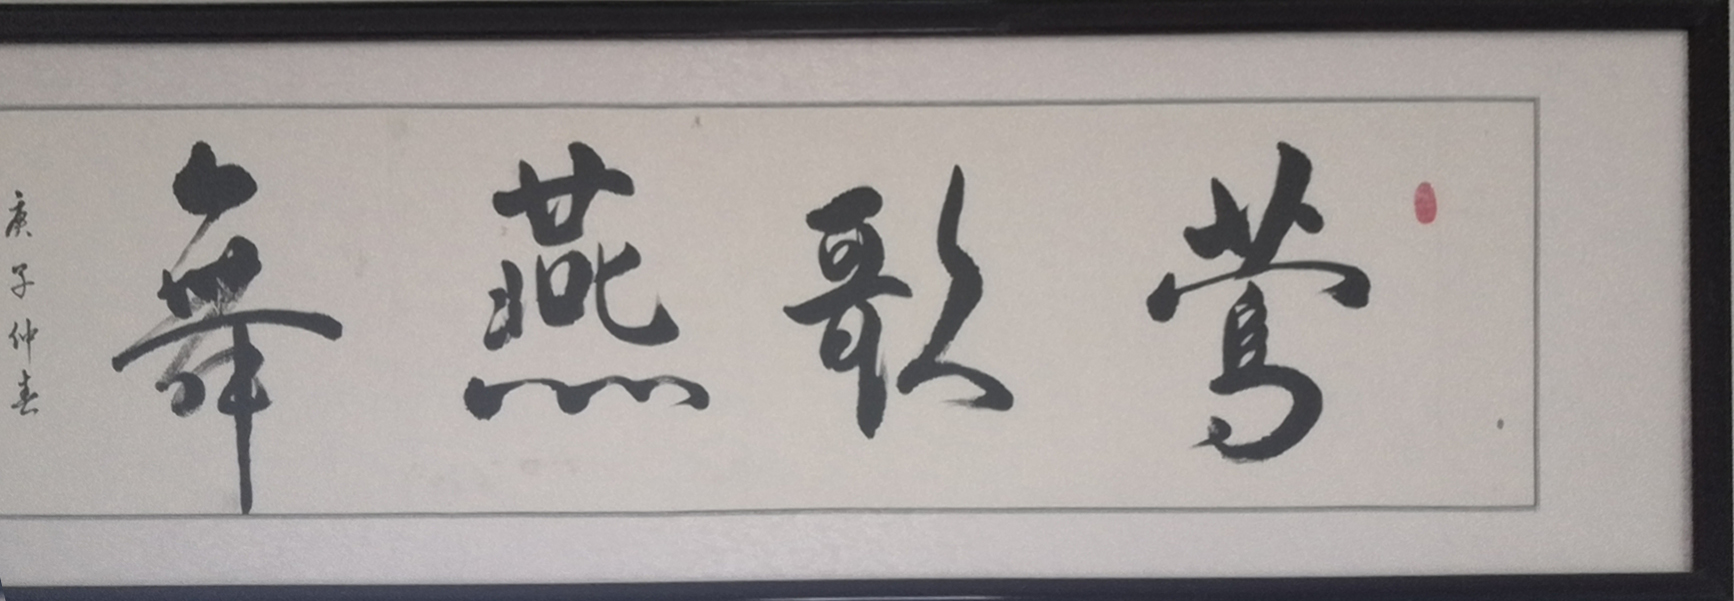 莺歌燕舞
庚子仲春